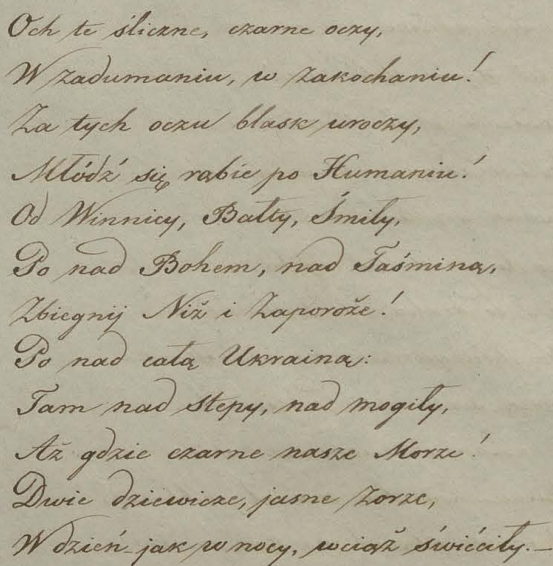 Och te śliczne, czarne oczy,
W zadumaniu, w zakochaniu!
Za tych oczu blask uroczy,
Młódź się rąbie po Humaniu!
Od Winnicy, Bałty, Śmiły,
Po nad Bohem, nad Taśminą,
Zbiegnij Niż i Zaporoże!
Po nad całą Ukrainą:
Tam nad stepy, nad mogiły,
Aż gdzie czarne nasze Morze!
Dwie dziewicze, jasne zorze,
W dzień jak w nocy, wciąż świéciły.—